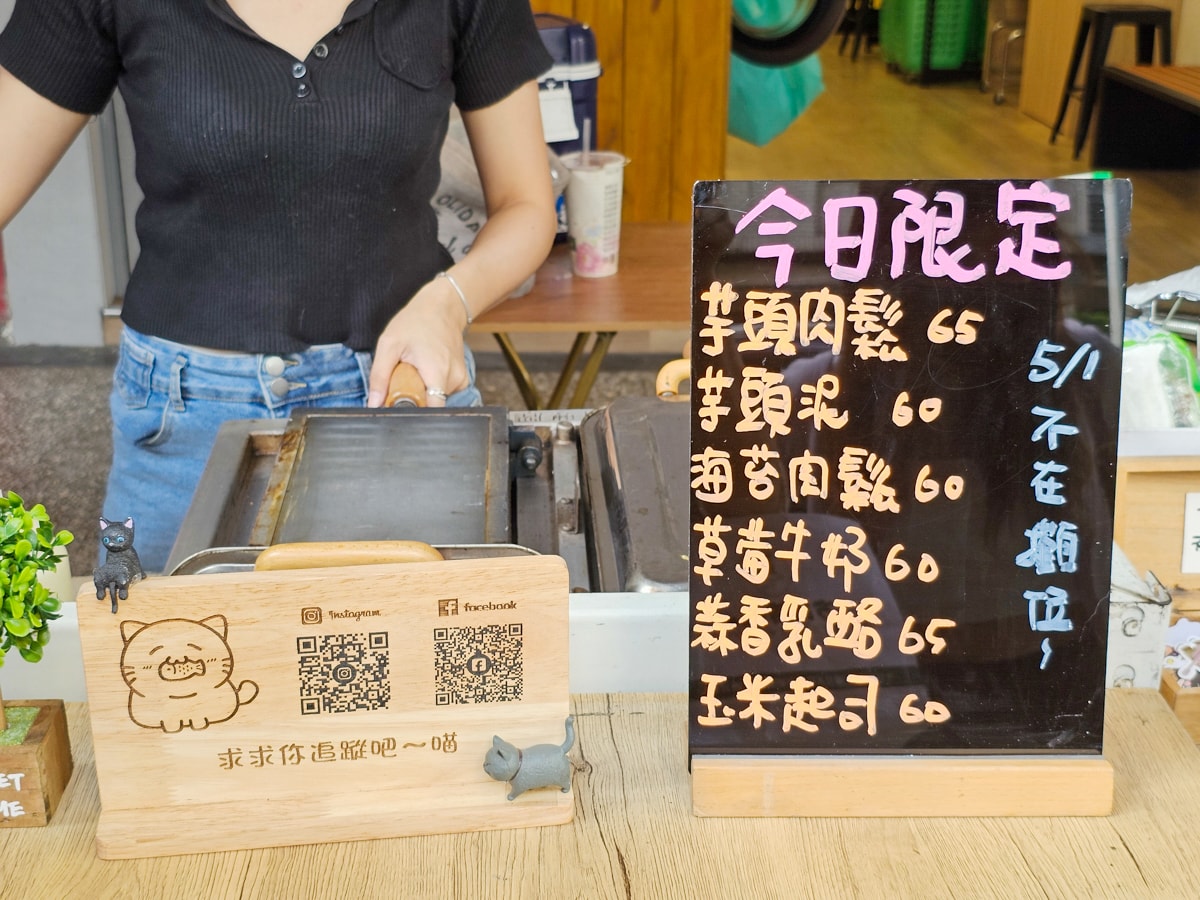 今日限定
芋頭肉鬆 65
芋頭泥 60
海苔肉鬆 60
草莓牛奶 60
蒜香乳酪 65
玉米起司 60
5/1
不
在
攤
位
~
Instagram
facebook
求求你追蹤吧~喵